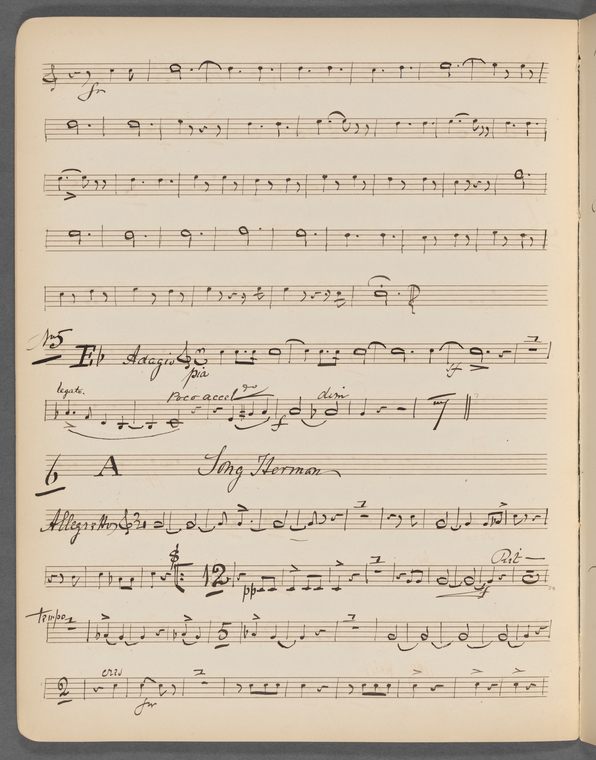 fz
No 5
E♭ Adagio C pia sf
legato. Poco accel dim f
6 A Song Herman
Allegretto 2
12 pp Rit
Tempo 5
2 cres